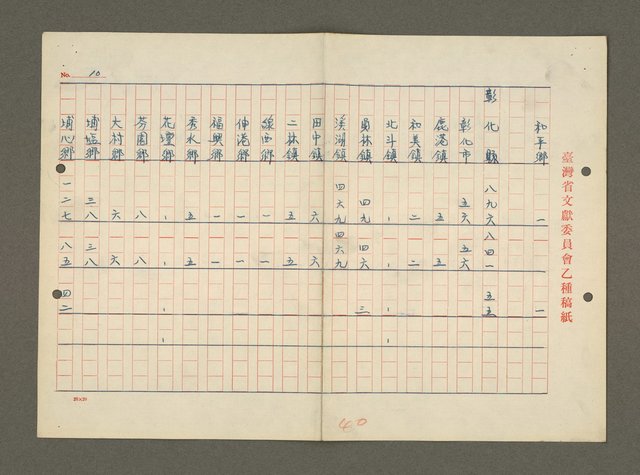 臺灣省文獻委員會乙種稿紙
No. 10
和平鄉 一 一
彰化縣 八九六 八四一 五五
彰化市 五六 五六
鹿港鎮 五 五
和美鎮 二 二
北斗鎮 、 、 、 、
員林鎮 四九 四六 三
溪湖鎮 四六九 四六九
田中鎮 六 六
二林鎮 五 五
線西鄉 一 一
伸港鄉 一 一
福興鄉 一 一
秀水鄉 五 五
花壇鄉 、 、 、 、
芬園鄉 八 八
大村鄉 六 六
埔塩鄉 三八 三八
埔心鄉 一二七 八五 四二
20×20
40